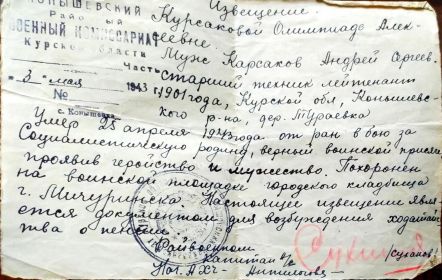 Извещение
КОНЫШЕВСКИЙ
Районный
ВОЕННЫЙ КОМИССАРИАТ
Курской области
Часть
3 мая 1943 г
№
с. Конышевка
Курсаковой Олимпиаде Алек-
сеевне
Муж Карсаков Андрей Сергеев.
Старший техник лейтенант
1901 года, Курской обл, Конышевс-
кого р-на, дер. Тураевка
Умер 25 апреля 1943 года от ран в бою за
Социалистическую родину, верный воинской присяге
проявив геройство и мужество. Похоронен
на воинской площадке городского кладбища
г. Мичуринска. Настоящее извещение явля-
ется документом для возбуждения ходатайс-
тва о пенсии
Райвоенком
Капитан а/с /Суханов/
Нач. АХЧ-